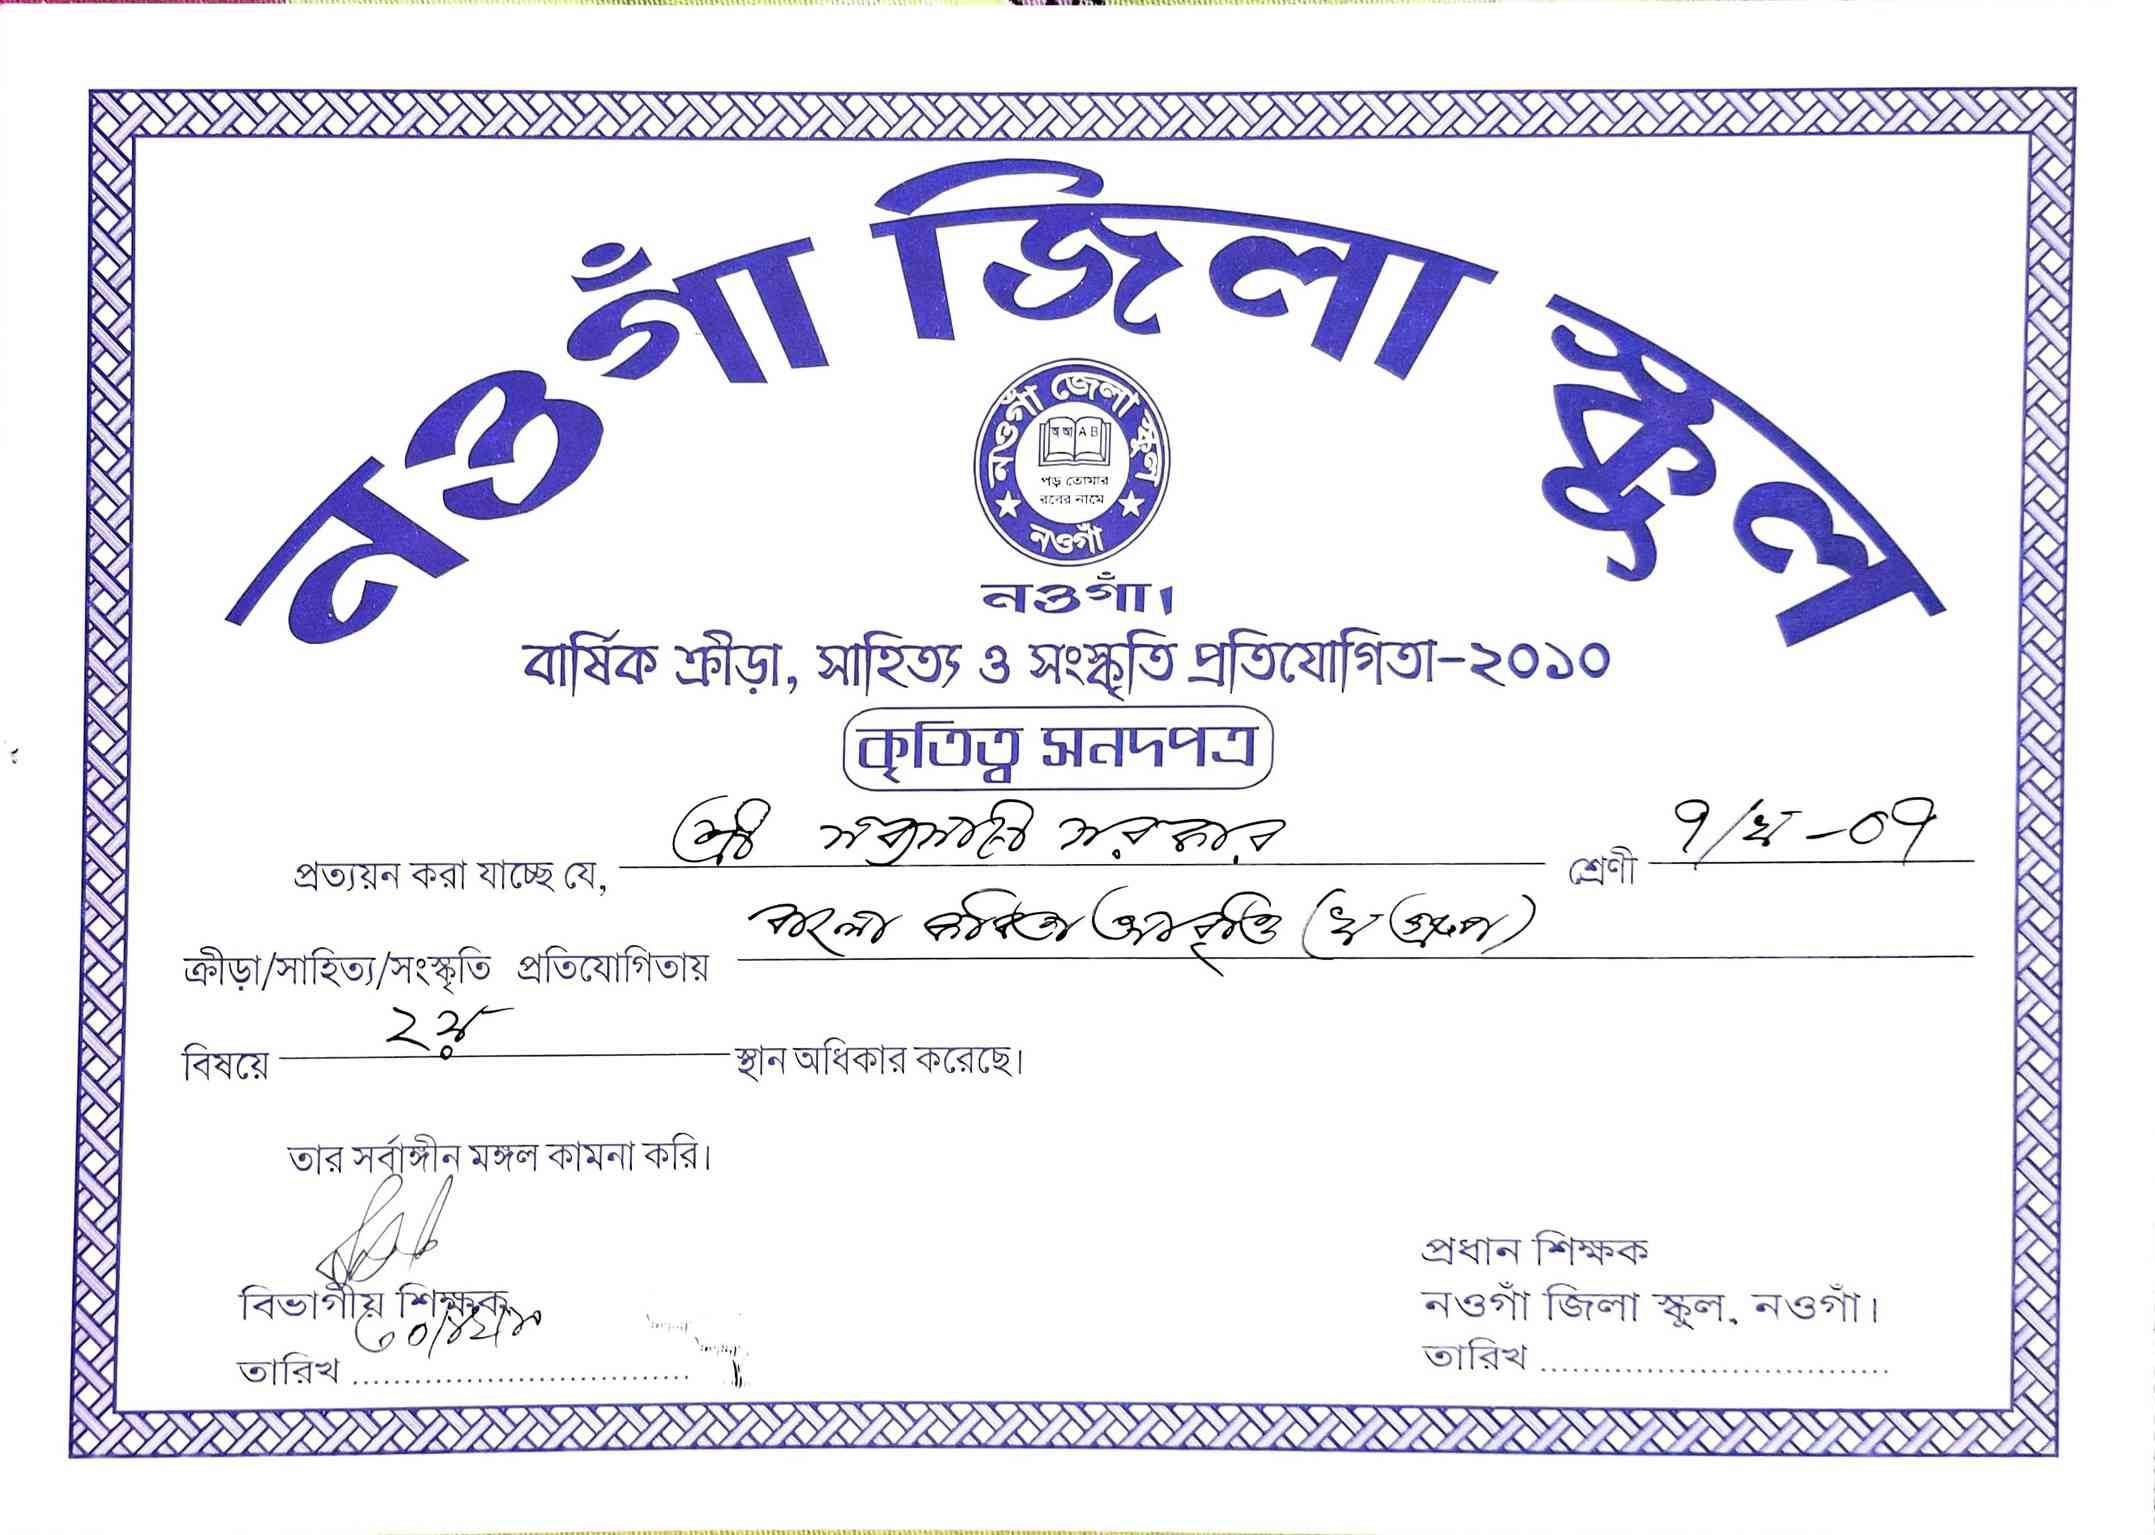 নওগাঁ জিলা স্কুল
নওগাঁ জেলা স্কুল
অ আ A B
পড় তোমার
রবের নামে
নওগাঁ
নওগাঁ।
বার্ষিক ক্রীড়া, সাহিত্য ও সংস্কৃতি প্রতিযোগিতা-২০১০
কৃতিত্ব সনদপত্র
প্রত্যয়ন করা যাচ্ছে যে, শ্রী সরকার শ্রেণী ৭/খ -০৭
ক্রীড়া/সাহিত্য/সংস্কৃতি প্রতিযোগিতায় বাংলা কবিতা আবৃত্তি (খ গ্রুপ)
বিষয়ে ২য় স্থান অধিকার করেছে।
তার সর্বাঙ্গীন মঙ্গল কামনা করি।
বিভাগীয় শিক্ষক
তারিখ
প্রধান শিক্ষক
নওগাঁ জিলা স্কুল, নওগাঁ।
তারিখ